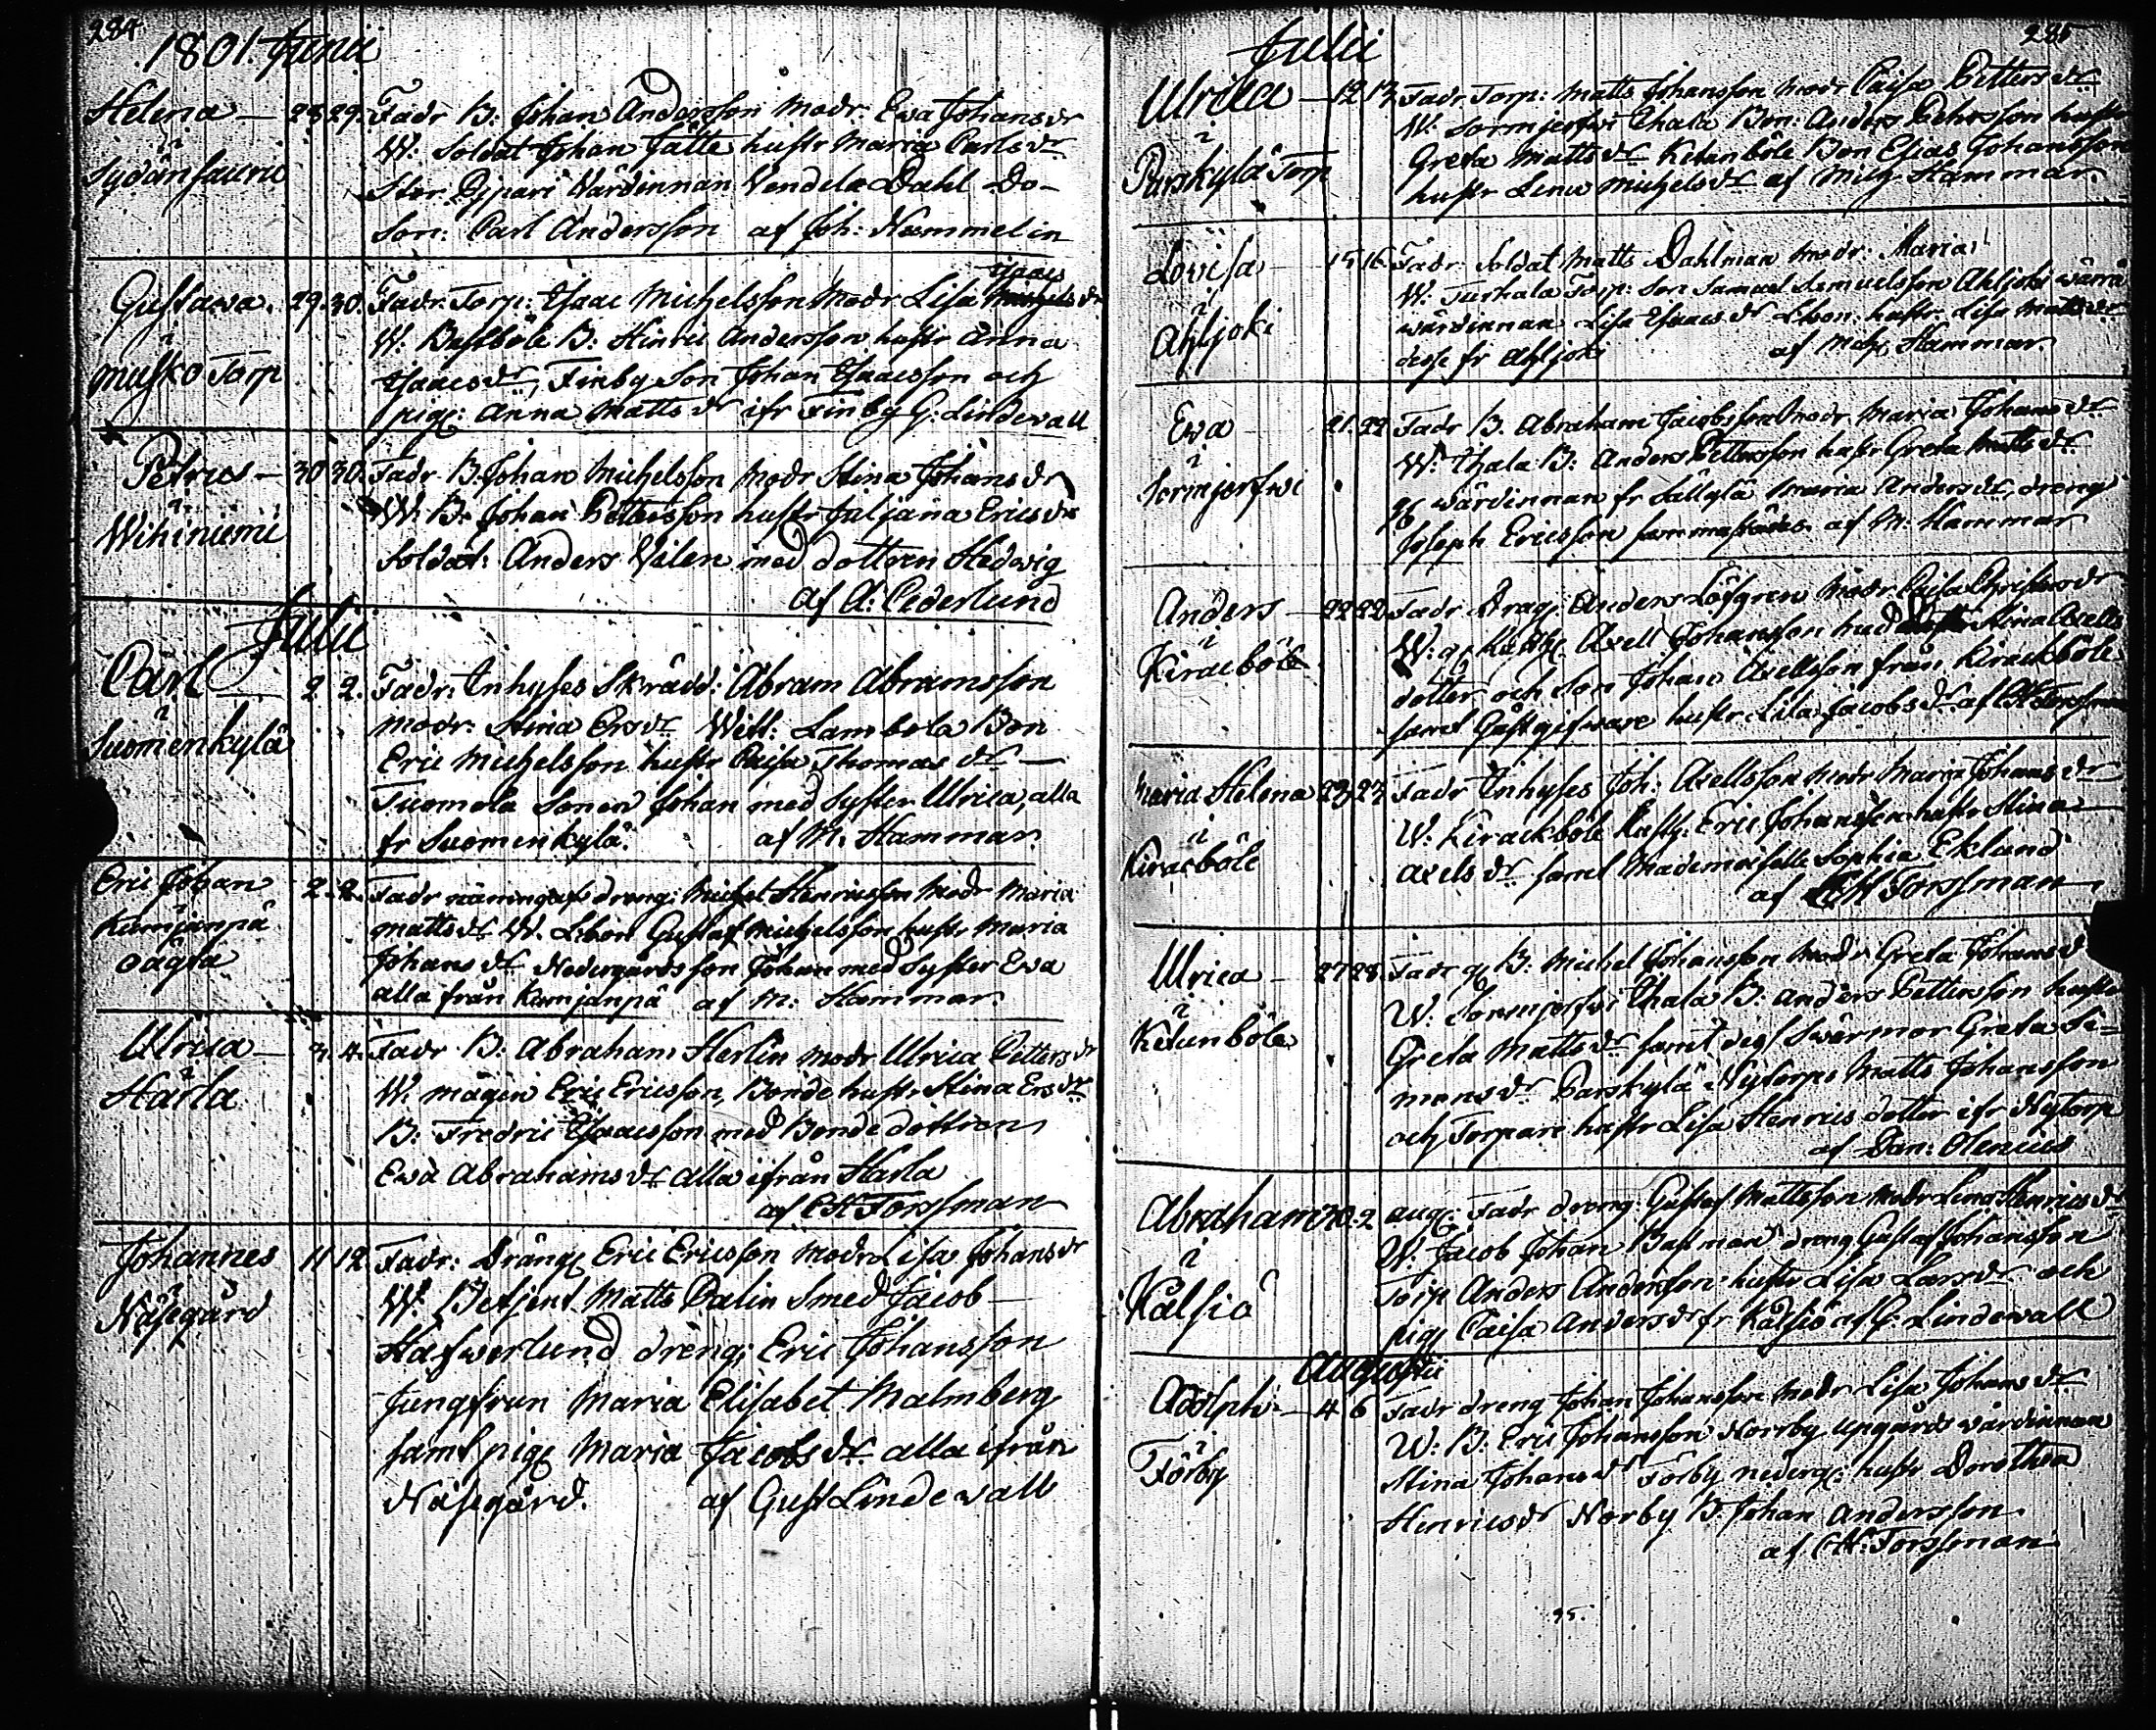 284.
1801. Junii
Helena — 28. 29. Fadr B: Johan Andersson Modr: Ewa Johansdr
i W: Soldat Johan Jätte hustr Maria Carlsdr
Sydänsaurii Stor Pipari Wärdinnan Vendela Dahl Do-
Son: Carl Andersson af Joh: Nummelin
Gustawa. 29. 30. Fadr. Torp: Esaac Michelsson Modr Lisa Esaacsdr
i W: Bastböle B: Hinric Andersson hustr Anna
Musko Torp Esaacsdr, Finby Son Johan Esaacsson och
pig: Anna Mattsdr ifr Finby G: Lindewall
Petrus — 30 30. Fadr B: Johan Michelsson Modr Stina Johansdr
i W. B: Johan Pettersson hustr Juliana Ericsdr
Wihiniemi Soldat: Anders Vilen med dottren Hedwig
af A: Cederlund
Julii
Carl — 2 2. Fadr: Inhyses Skrädd: Abram Abramsson
i modr: Stina Ersdr Witt: Lambola Bon
Suomenkylä Eric Michelsson hustr Caisa Thomasdr —
Tuomola Sonen Johan med Syster Ulrica, alla
fr Suomenkylä. af M. Hammar.
Eric Johan 2. 2. Fadr dreng: Michel Henricsson Modr Maria
i Mattsdr W. Gustaf Michelsson hustr Maria
Johansdr Nedergårds son Johan med Syster Ewa
alla från af M: Hammar
Ulrica — 3. 4. Fadr B: Abraham Herlin Modr Ulrica Pettersdr
i W. mågen Eric Ericsson, Bonde hustr Stina Ersdr
Härla B: Fredric Esaacsson med Bonde dottren
Ewa Abrahamsdr alla ifrån Harla
af CH Forssman
Johannes 11 12. Fadr: Dräng Eric Ericsson Modr Lisa Johansdr
i W: Betjent Matts Palin Smed Jacob
Näsegård Hafwerlund dreng; Eric Johansson
Jungfrun Maria Elisabet Malmberg
samt pig Maria Jacobsdr alla ifrån
Näsegård. af Gust Lindewall
285
Julii
Ulrica — 12 13 Fadr Torp: Matts Johansson Modr Caisa Pettersdr
i W: Sormjerfwi Thala Bon: Anders Pehrsson hustr
Parskylä Torp Greta Mattsdr Ketunböle Bon Esias Johansson
hustr Lena Michelsdr af Mich Hammar.
Lovisa 15 16. Fadr Soldat Matts Dahlman Modr: Maria
i W: Turkala Torp: Son Samuel Samuelsson Ahljoki
Ahljoki wärdinnan Lisa Esaacsdr hustr Lisa Mattsdr
desse fr Ahljoki af Mich Hammar.
Ewa 21. 22 Fadr B. Abraham Jacobsson Modr Maria Johansdr
i W: Thala B: Anders Pettersson hustr Greta Mattsdr
Sormjerfwi wärdinnan fr Sallylä Maria Andersdr, dreng
Joseph Ericsson sammastädes af M: Hammar
Anders — 22 22 Fadr Drag: Anders Löfgren Modr Caisa Christersdr
i W: Axell Johansson Stina Axells
Kiracböle dotter och Son Johan Axellsson från Kirackböle
samt Gästgifware hustr Lisa Jacobsdr af CH Forssman
Maria Helena 23 27 Fadr Inhyses Joh: Axellsson Modr Maria Johansdr
i W: Kirackböle Eric Johansson hustr Stina
Kiracböle Axelsdr samt Mademoiselle Sophia Eklund
af CH Forssman
Ulrica — 27 28. Fadr B: Michel Johansson Modr Greta Johansdr
i W: Sormjerfwi Thala B: Anders Pettersson hustr
Ketunböle Greta Mattsdr samt dess Swärmor Greta Si-
monsdr Parskylä Nytorps Matts Johansson
och Torpare hustr Lisa Henrics dotter ifr Nytorp
af Dan: Olenius
Abraham 30. 2 aug: Fadr dreng Gustaf Mattsson Modr Lena Henricsdr
i W: Jacob Johan Bastman dreng Gustaf Johansson
Kalsiö Torp Anders Andersson hustr Lisa Larsdr och
pig Caisa Andersdr fr Kalsiö af G: Lindewall
Augusti
Adolph — 4 6 Fadr dreng Johan Johansson Modr Lisa Johansdr
i W: B: Eric Johansson Norrby Upgårds wärdinnan
Förby Stina Johansdr Förby nederg: hustr Dorothea
Henricsdr Norby B. Johan Andersson
af CH: Forssman